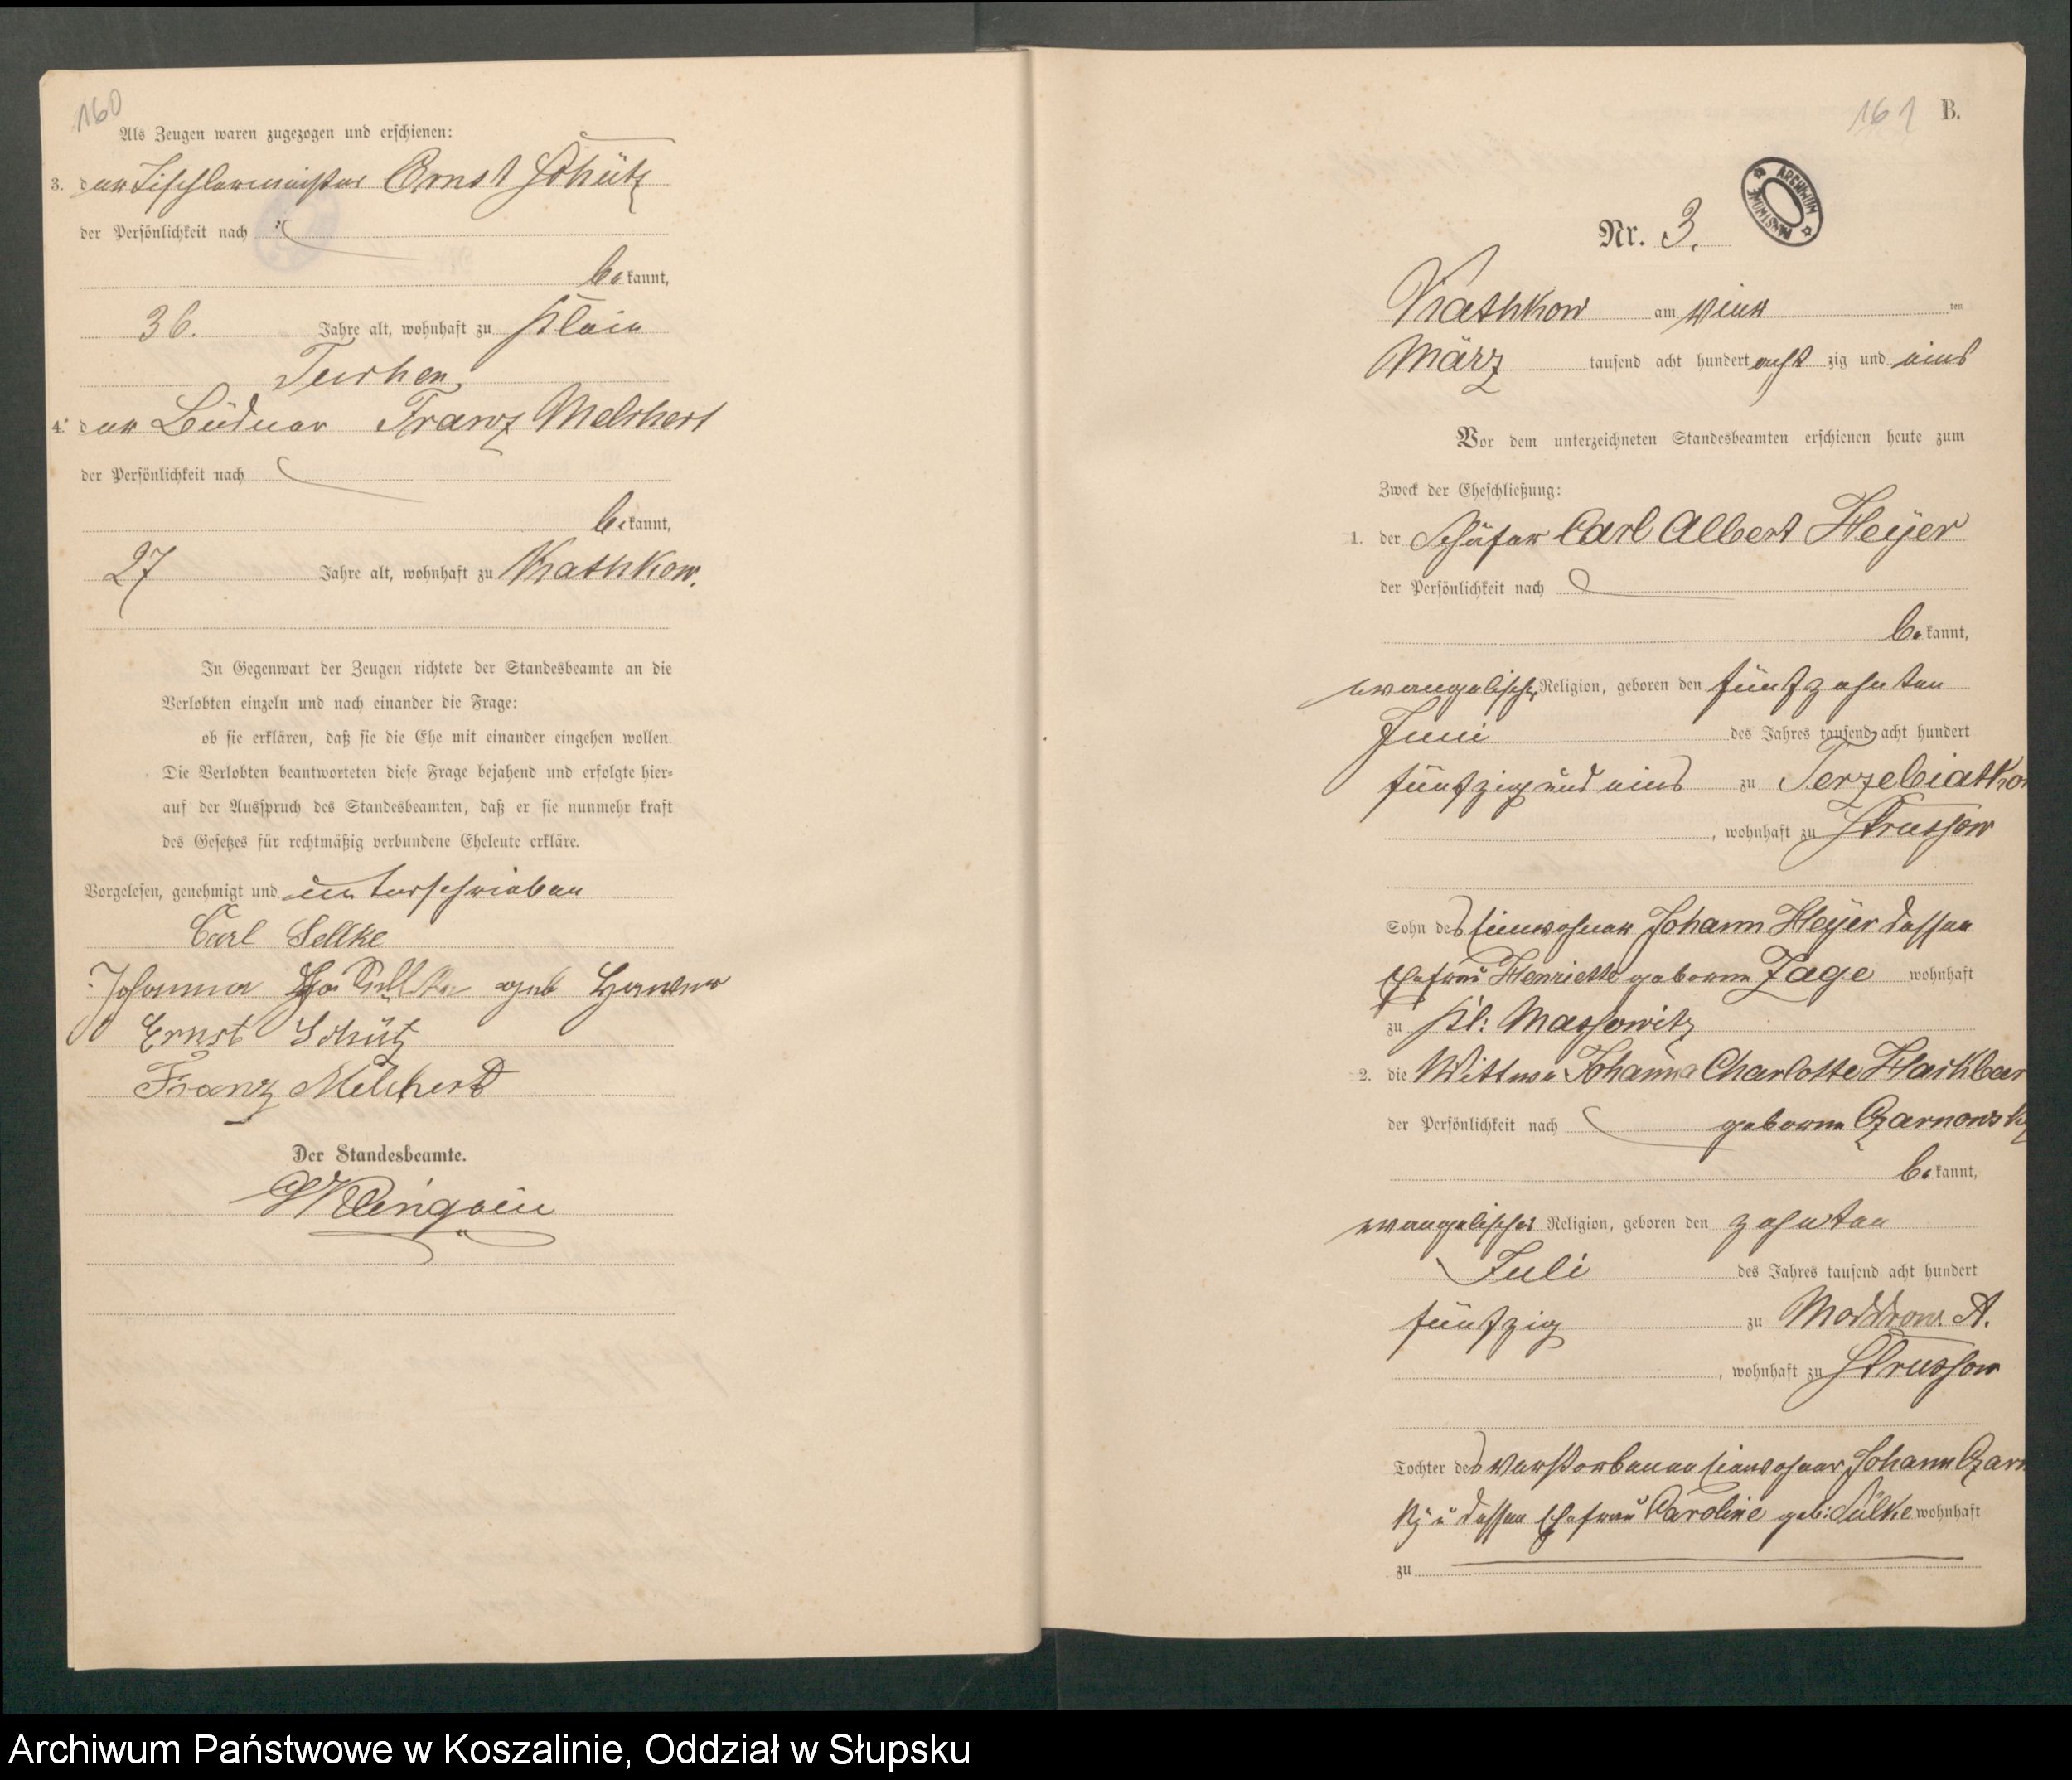 160
Als Zeugen waren zugezogen und erschienen:
3. der Tischlermeister Ernst Schütz
der Persönlichkeit nach
be kannt,
36. Jahre alt, wohnhaft zu Klein
Tuchen,
4. der Büdner Franz Melchert
der Persönlichkeit nach
be kannt,
27 Jahre alt, wohnhaft zu Kathkow.
In Gegenwart der Zeugen richtete der Standesbeamte an die
Verlobten einzeln und nach einander die Frage:
ob sie erklären, daß sie die Ehe mit einander eingehen wollen.
Die Verlobten beantworteten diese Frage bejahend und erfolgte hier-
auf der Ausspruch des Standesbeamten, daß er sie nunmehr kraft
des Gesetzes für rechtmäßig verbundene Eheleute erkläre.
Vorgelesen, genehmigt und unterschrieben
Carl Sellke
Johanna geb
Ernst Schütz
Franz Melchert
Der Standesbeamte.
161 B.
ARCHIWUM PAŃSTWOWE
Nr. 3.
Kathkow am vier ten
März tausend acht hundert acht zig und eins
Vor dem unterzeichneten Standesbeamten erschienen heute zum
Zweck der Eheschließung:
1. der Schäfer Carl Albert Heÿer
der Persönlichkeit nach
be kannt,
evangelischer Religion, geboren den fünfzehnten
Juni des Jahres tausend acht hundert
fünfzig und eins zu Terzebiatko
, wohnhaft zu Strussow
Sohn des Einwohner Johann Heÿer dessen
Ehefrau Henriette geborene Zage wohnhaft
zu Kl: Massowitz
2. die Wittwe Johanna Charlotte Hackbar
der Persönlichkeit nach geborne Czarnowsk
be kannt,
evangelischer Religion, geboren den zehnten
Juli des Jahres tausend acht hundert
fünfzig zu Moddrow. A.
, wohnhaft zu Strussow
Tochter des verstorbenen Einwohner Johann Czarn
kÿ u dessen Ehefrau Caroline geb: Sülke wohnhaft
zu
Archiwum Państwowe w Koszalinie, Oddział w Słupsku